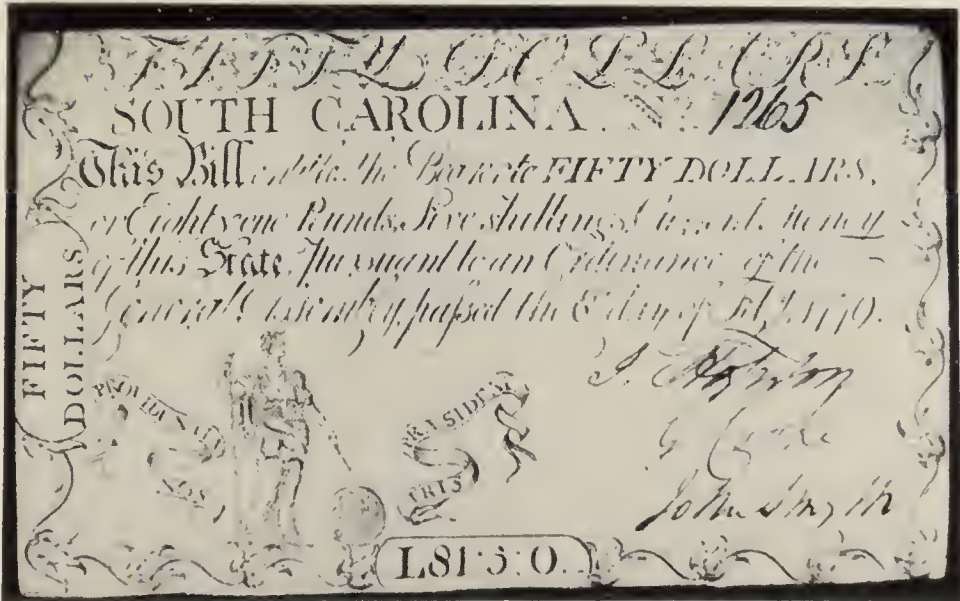 FIFTY DOLLARS
SOUTH CAROLINA. No. 1265
This Bill entitles the Bearer to FIFTY DOLLARS,
or Eighty one Pounds, Five shillings Current money
of this State, Pursuant to an Ordinance of the
General Assembly, passed the 8 day of Feb.
FIFTY
DOLLARS
PROVIDUS
SOS
PRÆSIDIUM
John Smyth
L81:5:0.